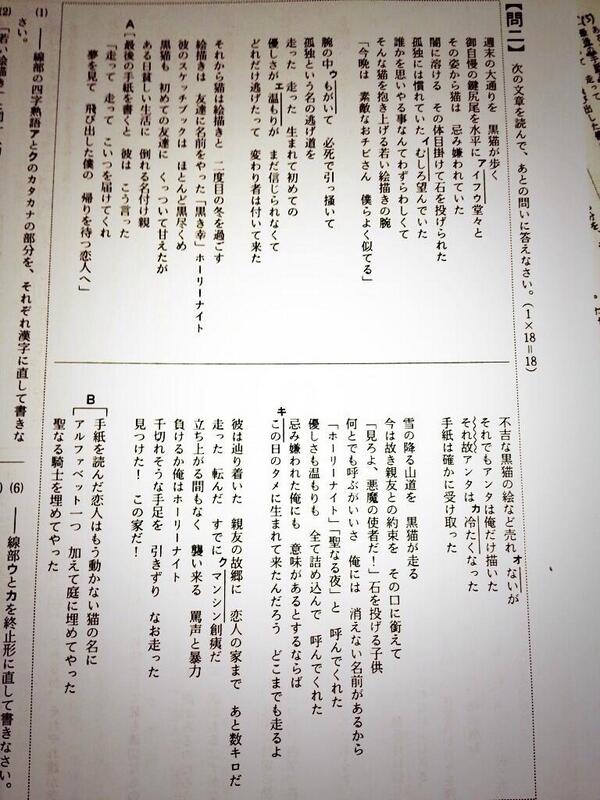 (5)
【問二】 次の文章を読んで、あとの問いに答えなさい。(1×18=18)
週末の大通りを 黒猫が歩く
御自慢の鍵尻尾を水平に アイフウ堂々と
その姿から猫は 忌み嫌われていた
闇に溶ける その体目掛けて石を投げられた
孤独には慣れていた イむしろ望んでいた
誰かを思いやる事なんてわずらわしくて
そんな猫を抱き上げる若い絵描きの腕
「今晩は 素敵なおチビさん 僕らよく似てる」
腕の中ウもがいて 必死で引っ掻いて
孤独という名の逃げ道を
走った 走った 生まれて初めての
優しさが エ温もりが まだ信じられなくて
どれだけ逃げたって 変わり者は付いて来た
それから猫は絵描きと 二度目の冬を過ごす
絵描きは 友達に名前をやった 「黒き幸」ホーリーナイト
彼のスケッチブックは ほとんど黒尽くめ
黒猫も 初めての友達に くっついて甘えたが
ある日貧しい生活に 倒れる名付け親
A 最後の手紙を書くと 彼は こう言った
「走って 走って こいつを届けてくれ
夢を見て 飛び出した僕の 帰りを待つ恋人へ」
不吉な黒猫の絵など売れオないが
それでもアンタは俺だけ描いた
それ故アンタはカ冷たくなった
手紙は確かに受け取った
雪の降る山道を 黒猫が走る
今は故き親友との約束を その口に銜えて
「見ろよ、悪魔の使者だ!」石を投げる子供
何とでも呼ぶがいいさ 俺には 消えない名前があるから
「ホーリーナイト」「聖なる夜」と 呼んでくれた
優しさも温もりも 全て詰め込んで 呼んでくれた
忌み嫌われた俺にも 意味があるとするならば
キこの日のタメに生まれて来たんだろう どこまでも走るよ
彼は辿り着いた 親友の故郷に 恋人の家まで あと数キロだ
走った 転んだ すでにクマンシン創痍だ
立ち上がる間もなく 襲い来る 罵声と暴力
負けるか俺はホーリーナイト
千切れそうな手足を 引きずり なお走った
見つけた! この家だ!
B 手紙を読んだ恋人はもう動かない猫の名に
アルファベット一つ 加えて庭に埋めてやった
聖なる騎士を埋めてやった
(1) ――線部の四字熟語アとクのカタカナの部分を、それぞれ漢字に直して書きな
さい。
(2)
(6) ――線部ウとカを終止形に直して書きなさい。